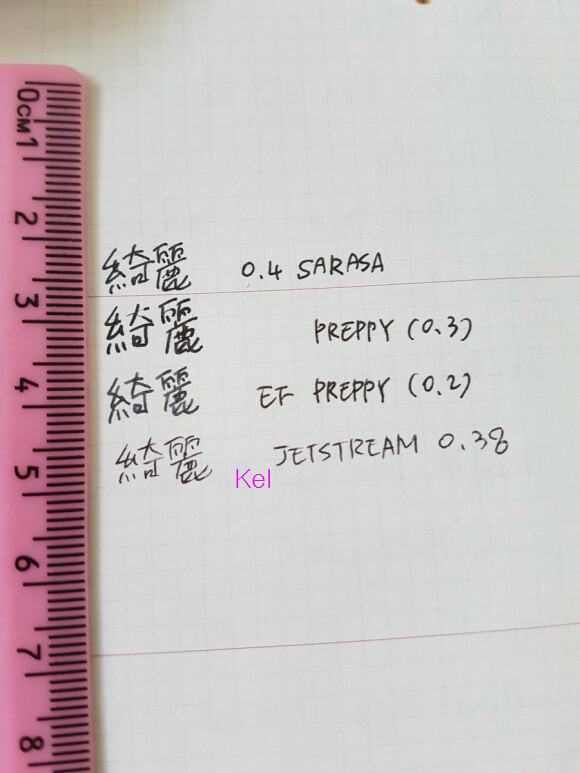 0CM 1 2 3 4 5 6 7 8
綺麗 0.4 SARASA
綺麗 PREPPY (0.3)
綺麗 EF PREPPY (0.2)
綺麗 JETSTREAM 0.38
Kel